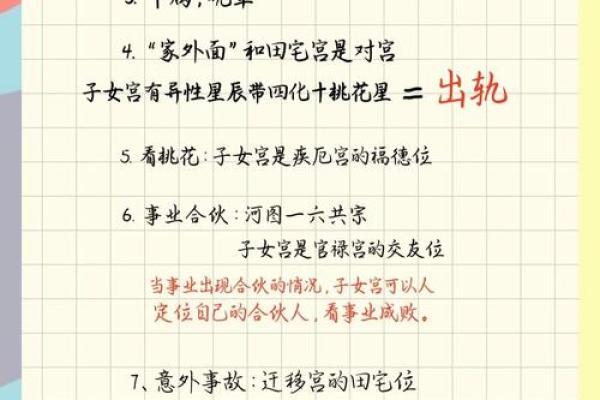 4. “家外面”和田宅宫是对宫
子女宫有异性星辰带四化十桃花星 = 出轨
5. 看桃花：子女宫是疾厄宫的福德位
6. 事业合伙：河图一六共宗
子女宫是官禄宫的交友位
当事业出现合伙的情况，子女宫可以人
定位自己的合伙人，看事业成败。
7、意外事故：迁移宫的田宅位